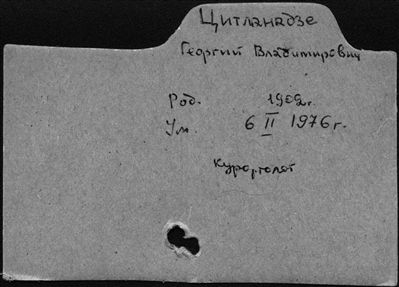 Цитланадзе
Георгий Владимирович
Род. 1902г.
Ум. 6 II 1976г.
Курортолог